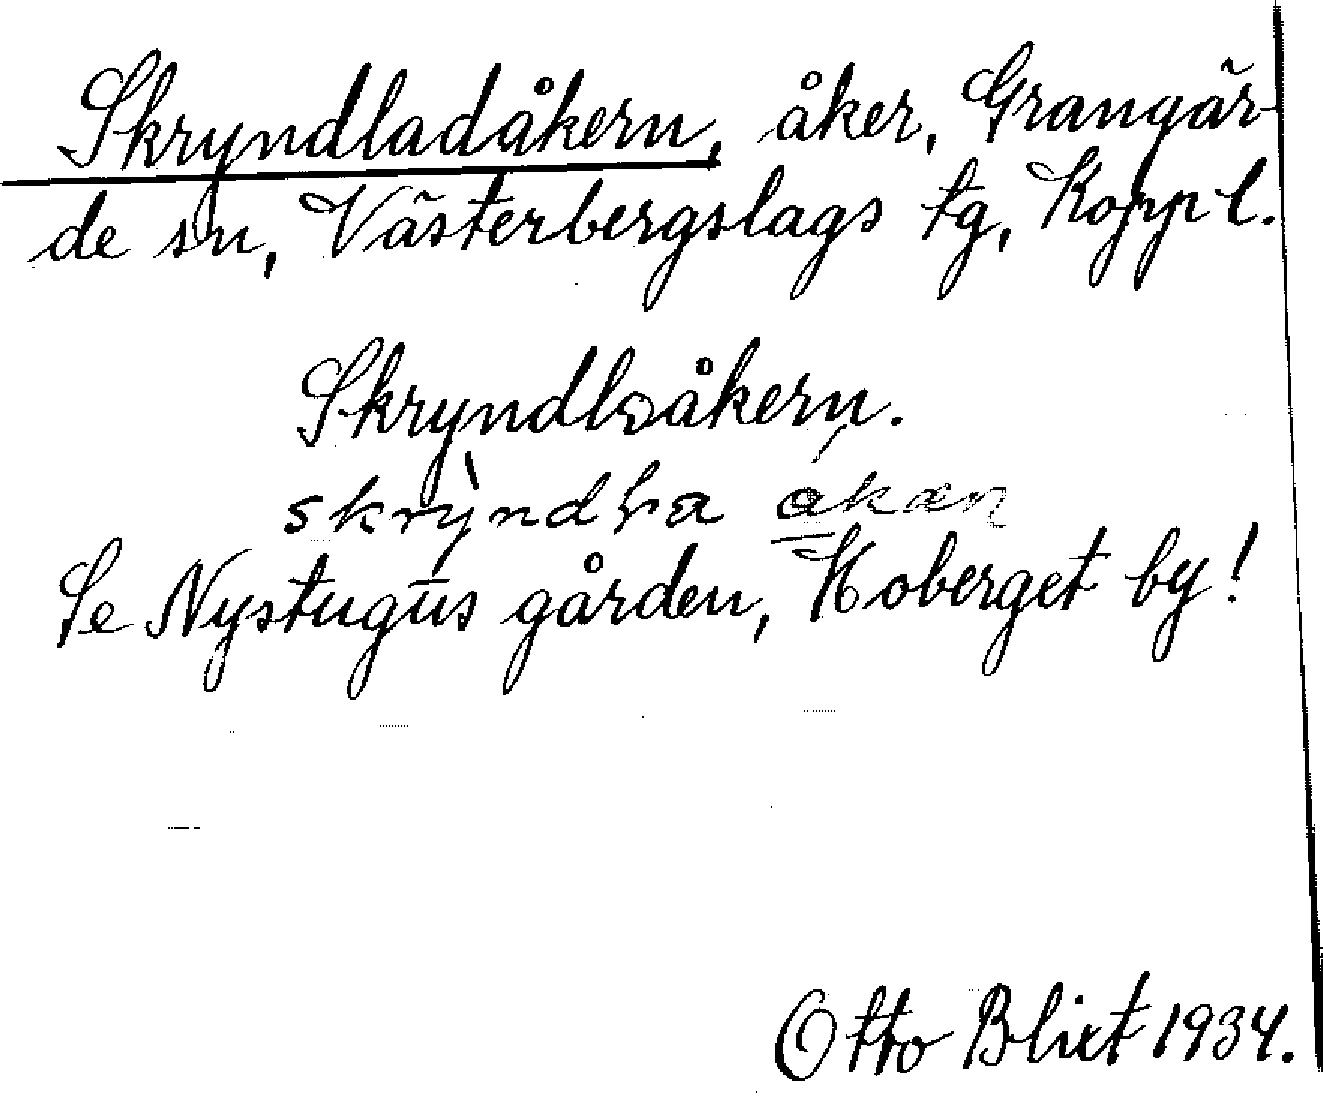 Skryndladåkern, åker, Grangär-
de sn, Västerbergslags tg, Kopp l.
Skryndlaåkern.
Se Nystugus gården, Hoberget by!
Otto Blixt 1934.